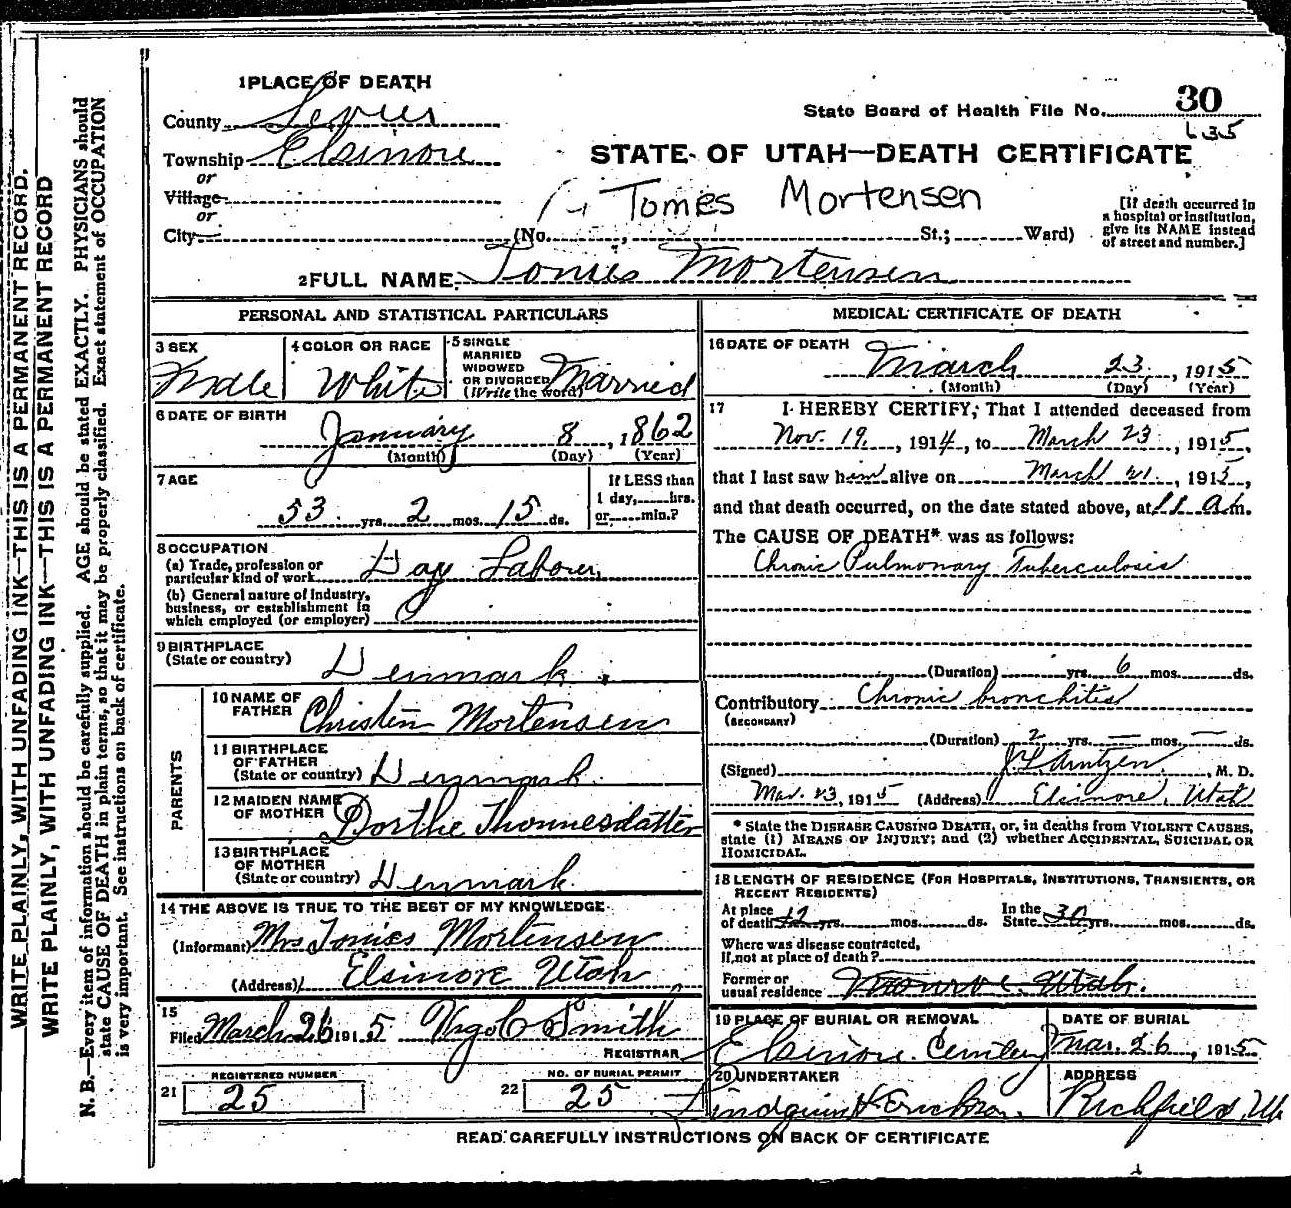 WRITE PLAINLY, WITH UNFADING INK—THIS IS A PERMANENT RECORD.
WRITE PLAINLY, WITH UNFADING INK—THIS IS A PERMANENT RECORD
N. B.—Every item of information should be carefully supplied. AGE should be stated EXACTLY. PHYSICIANS should
state CAUSE OF DEATH in plain terms, so that it may be properly classified. Exact statement of OCCUPATION
is very important. See instructions on back of certificate.
1 PLACE OF DEATH
County Sevier
Township Elsinore
or
Village
or
City (No. , St.; Ward)
State Board of Health File No. 30
635
STATE OF UTAH—DEATH CERTIFICATE
Tomes Mortensen
[If death occurred in
a hospital or institution,
give its NAME instead
of street and number.]
2 FULL NAME Tomies Mortensen
PERSONAL AND STATISTICAL PARTICULARS
3 SEX
Male
4 COLOR OR RACE
White
5 SINGLE
MARRIED
WIDOWED
OR DIVORCED
(Write the word)
Married
6 DATE OF BIRTH
January 8, 1862
(Month) (Day) (Year)
7 AGE
53 yrs. 2 mos. 15 ds.
If LESS than
1 day, hrs.
or min.?
8 OCCUPATION
(a) Trade, profession or
particular kind of work Day Laborer
(b) General nature of Industry,
business, or establishment in
which employed (or employer)
9 BIRTHPLACE
(State or country) Denmark
PARENTS
10 NAME OF
FATHER Christen Mortensen
11 BIRTHPLACE
OF FATHER
(State or country) Denmark
12 MAIDEN NAME
OF MOTHER Dorthe Thonnesdatter
13 BIRTHPLACE
OF MOTHER
(State or country) Denmark
14 THE ABOVE IS TRUE TO THE BEST OF MY KNOWLEDGE
(Informant) Mrs Tomies Mortensen
(Address) Elsinore Utah
15
Filed March 26 1915 Smith
REGISTRAR
REGISTERED NUMBER
21 25
NO. OF BURIAL PERMIT
22 25
MEDICAL CERTIFICATE OF DEATH
16 DATE OF DEATH
March 23, 1915
(Month) (Day) (Year)
17 I HEREBY CERTIFY, That I attended deceased from
Nov. 19, 1914, to March 23, 1915,
that I last saw him alive on March 21, 1915,
and that death occurred, on the date stated above, at 11 a.m.
The CAUSE OF DEATH* was as follows:
Chronic Pulmonary Tuberculosis
(Duration) yrs. 6 mos. ds.
Contributory Chronic bronchites
(SECONDARY)
(Duration) 2 yrs. — mos. — ds.
(Signed) J. L. Arntzen, M. D.
Mar. 23, 1915 (Address) Elsinore, Utah
* State the DISEASE CAUSING DEATH, or, in deaths from VIOLENT CAUSES,
state (1) MEANS OF INJURY; and (2) whether ACCIDENTAL, SUICIDAL OR
HOMICIDAL.
18 LENGTH OF RESIDENCE (FOR HOSPITALS, INSTITUTIONS, TRANSIENTS, OR
RECENT RESIDENTS)
At place
of death 12 yrs. mos. ds.
In the
State 30 yrs. mos. ds.
Where was disease contracted,
If not at place of death?
Former or
usual residence Monroe Utah.
19 PLACE OF BURIAL OR REMOVAL
Elsinore Cemtery
DATE OF BURIAL
Mar. 26, 1915
20 UNDERTAKER
ADDRESS
Richfield, Ut
READ CAREFULLY INSTRUCTIONS ON BACK OF CERTIFICATE